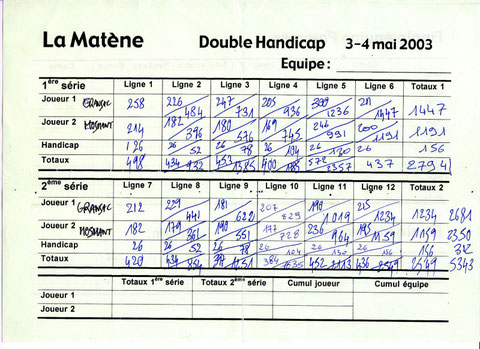 La Matène Double Handicap 3-4 mai 2003
Equipe :
1ère série Ligne 1 Ligne 2 Ligne 3 Ligne 4 Ligne 5 Ligne 6 Totaux 1
Joueur 1 258 226 484 247 731 205 936 300 1236 211 1447 1447
Joueur 2 214 182 396 180 576 169 745 246 991 200 1191 1191
Handicap 26 26 52 26 78 26 104 26 130 26 156
Totaux 498 434 932 453 1385 400 572 437 2794
2ème série Ligne 7 Ligne 8 Ligne 9 Ligne 10 Ligne 11 Ligne 12 Totaux 2
Joueur 1 212 229 441 181 622 207 829 190 1019 215 1234 1234 2681
Joueur 2 182 179 361 190 551 177 728 236 964 195 1159 1159 2350
Handicap 26 26 52 26 78 26 104 26 130 26 156 156 312
Totaux 420 434 854 452 436 2549 2549 5343
Totaux 1ère série Totaux 2ème série Cumul joueur Cumul équipe
Joueur 1
Joueur 2